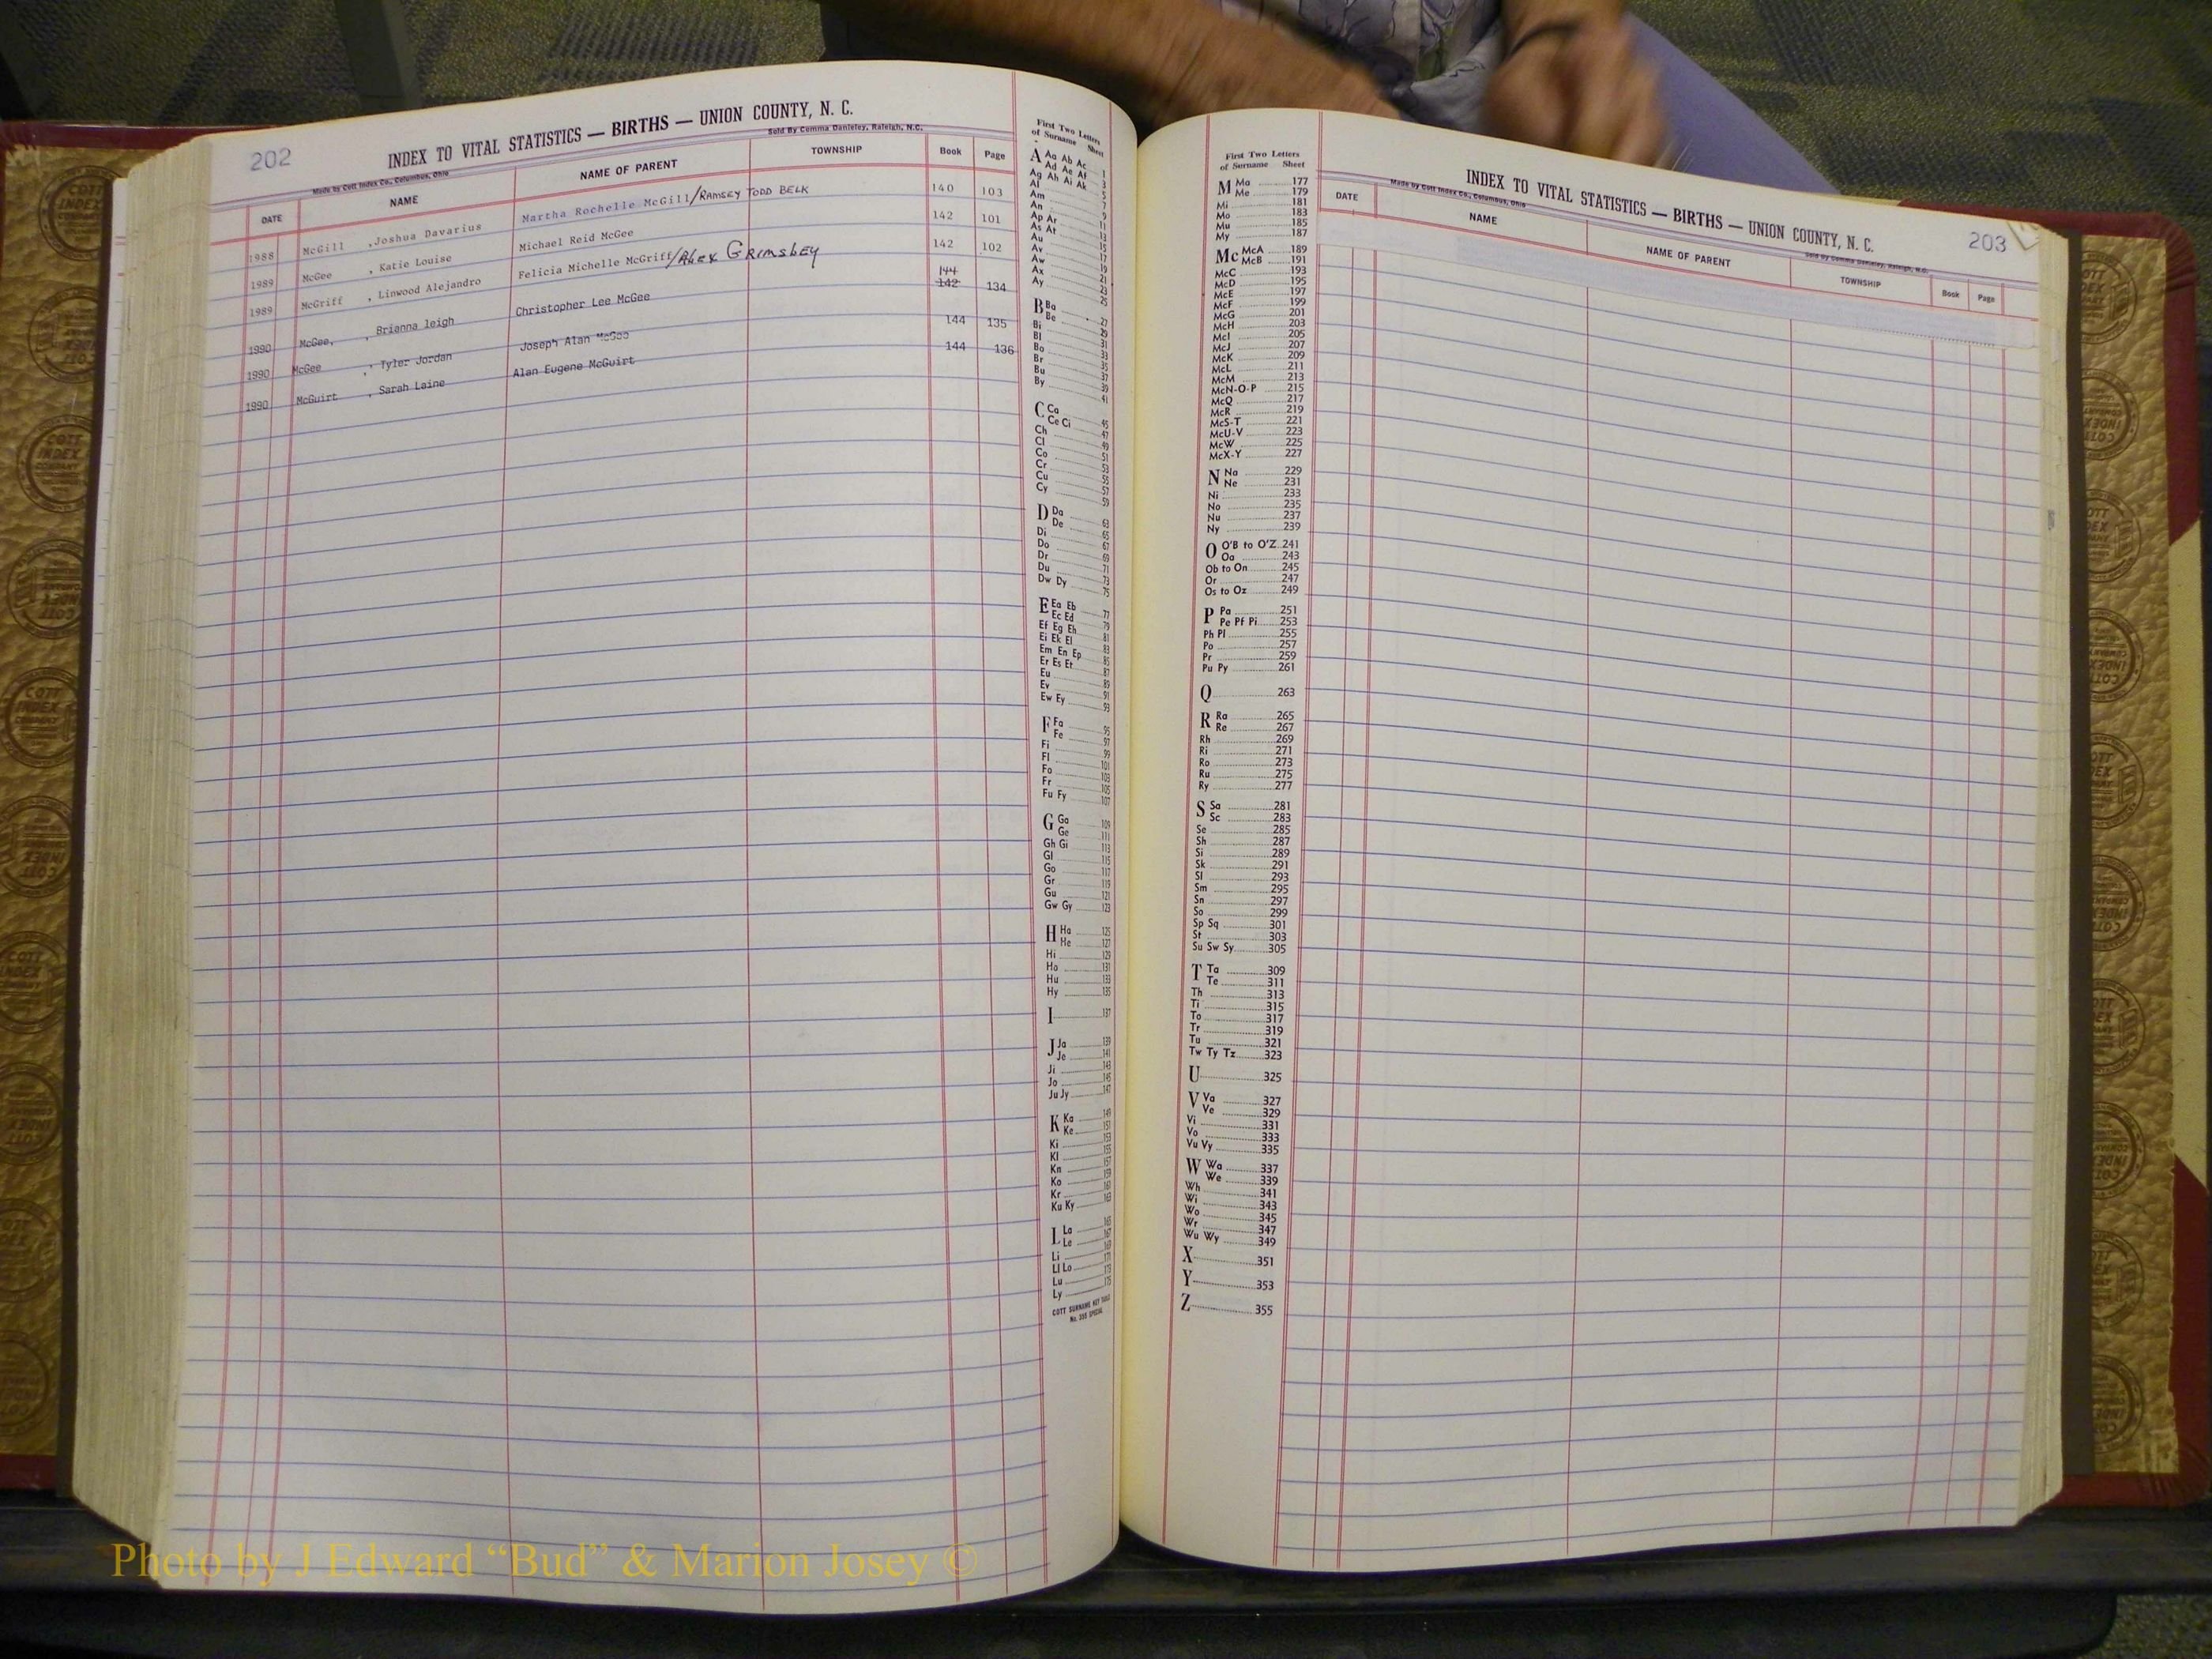 202
INDEX TO VITAL STATISTICS — BIRTHS — UNION COUNTY, N. C.
Made by Cott Index Co., Columbus, Ohio
Sold By Comma Danieley, Raleigh, N.C.
DATE NAME NAME OF PARENT TOWNSHIP Book Page
1988 McGill ,Joshua Davarius Martha Rochelle McGill/RAMSEY TODD BELK 140 103
1989 McGee , Katie Louise Michael Reid McGee 142 101
1989 McGriff , Linwood Alejandro Felicia Michelle McGriff/Alex Grimsley 142 102
1990 McGee, , Brianna leigh Christopher Lee McGee 144 142 134
1990 McGee , Tyler Jordan Joseph Alan McGee 144 135
1990 McGuirt , Sarah Laine Alan Eugene McGuirt 144 136
First Two Letters
of Surname Sheet
A Aa Ab Ac 1
Ad Ae Af 3
Ag Ah Ai Ak 5
Al
Am
An
Ap Ar
As At
Au
Av
Aw
Ax
Ay
B Ba 27
Be 29
Bi 31
Bl 33
Bo 35
Br 37
Bu 39
By 41
C Ca 45
Ce Ci 47
Ch 49
Cl 51
Co 53
Cr 55
Cu 57
Cy 59
D Da 63
De 65
Di 67
Do 69
Dr 71
Du 73
Dw Dy 75
E Ea Eb 77
Ec Ed 79
Ef Eg Eh 81
Ei Ek El 83
Em En Ep 85
Er Es Et 87
Eu 89
Ev 91
Ew Ey 93
F Fa 95
Fe 97
Fi 99
Fl 101
Fo 103
Fr 105
Fu Fy 107
G Ga 109
Ge 111
Gh Gi 113
Gl 115
Go 117
Gr 119
Gu 121
Gw Gy 123
H Ha 125
He 127
Hi 129
Ho 131
Hu 133
Hy 135
I 137
J Ja 139
Je 141
Ji 143
Jo 145
Ju Jy 147
K Ka 149
Ke 151
Ki 153
Kl 155
Kn 157
Ko 159
Kr 161
Ku Ky 163
L La 165
Le 167
Li 169
Ll Lo 171
Lu 173
Ly 175
COTT SURNAME KEY TABLE
No. 355 SPECIAL
First Two Letters
of Surname Sheet
M Ma 177
Me 179
Mi 181
Mo 183
Mu 185
My 187
Mc McA 189
McB 191
McC 193
McD 195
McE 197
McF 199
McG 201
McH 203
McI 205
McJ 207
McK 209
McL 211
McM 213
McN-O-P 215
McQ 217
McR 219
McS-T 221
McU-V 223
McW 225
McX-Y 227
N Na 229
Ne 231
Ni 233
No 235
Nu 237
Ny 239
O O'B to O'Z 241
Oa 243
Ob to On 245
Or 247
Os to Oz 249
P Pa 251
Pe Pf Pi 253
Ph Pl 255
Po 257
Pr 259
Pu Py 261
Q 263
R Ra 265
Re 267
Rh 269
Ri 271
Ro 273
Ru 275
Ry 277
S Sa 281
Sc 283
Se 285
Sh 287
Si 289
Sk 291
Sl 293
Sm 295
Sn 297
So 299
Sp Sq 301
St 303
Su Sw Sy 305
T Ta 309
Te 311
Th 313
Ti 315
To 317
Tr 319
Tu 321
Tw Ty Tz 323
U 325
V Va 327
Ve 329
Vi 331
Vo 333
Vu Vy 335
W Wa 337
We 339
Wh 341
Wi 343
Wo 345
Wr 347
Wu Wy 349
X 351
Y 353
Z 355
INDEX TO VITAL STATISTICS — BIRTHS — UNION COUNTY, N. C.
203
Made by Cott Index Co., Columbus, Ohio
DATE NAME NAME OF PARENT TOWNSHIP Book Page
COTT INDEX COMPANY
Photo by J Edward “Bud” & Marion Josey ©